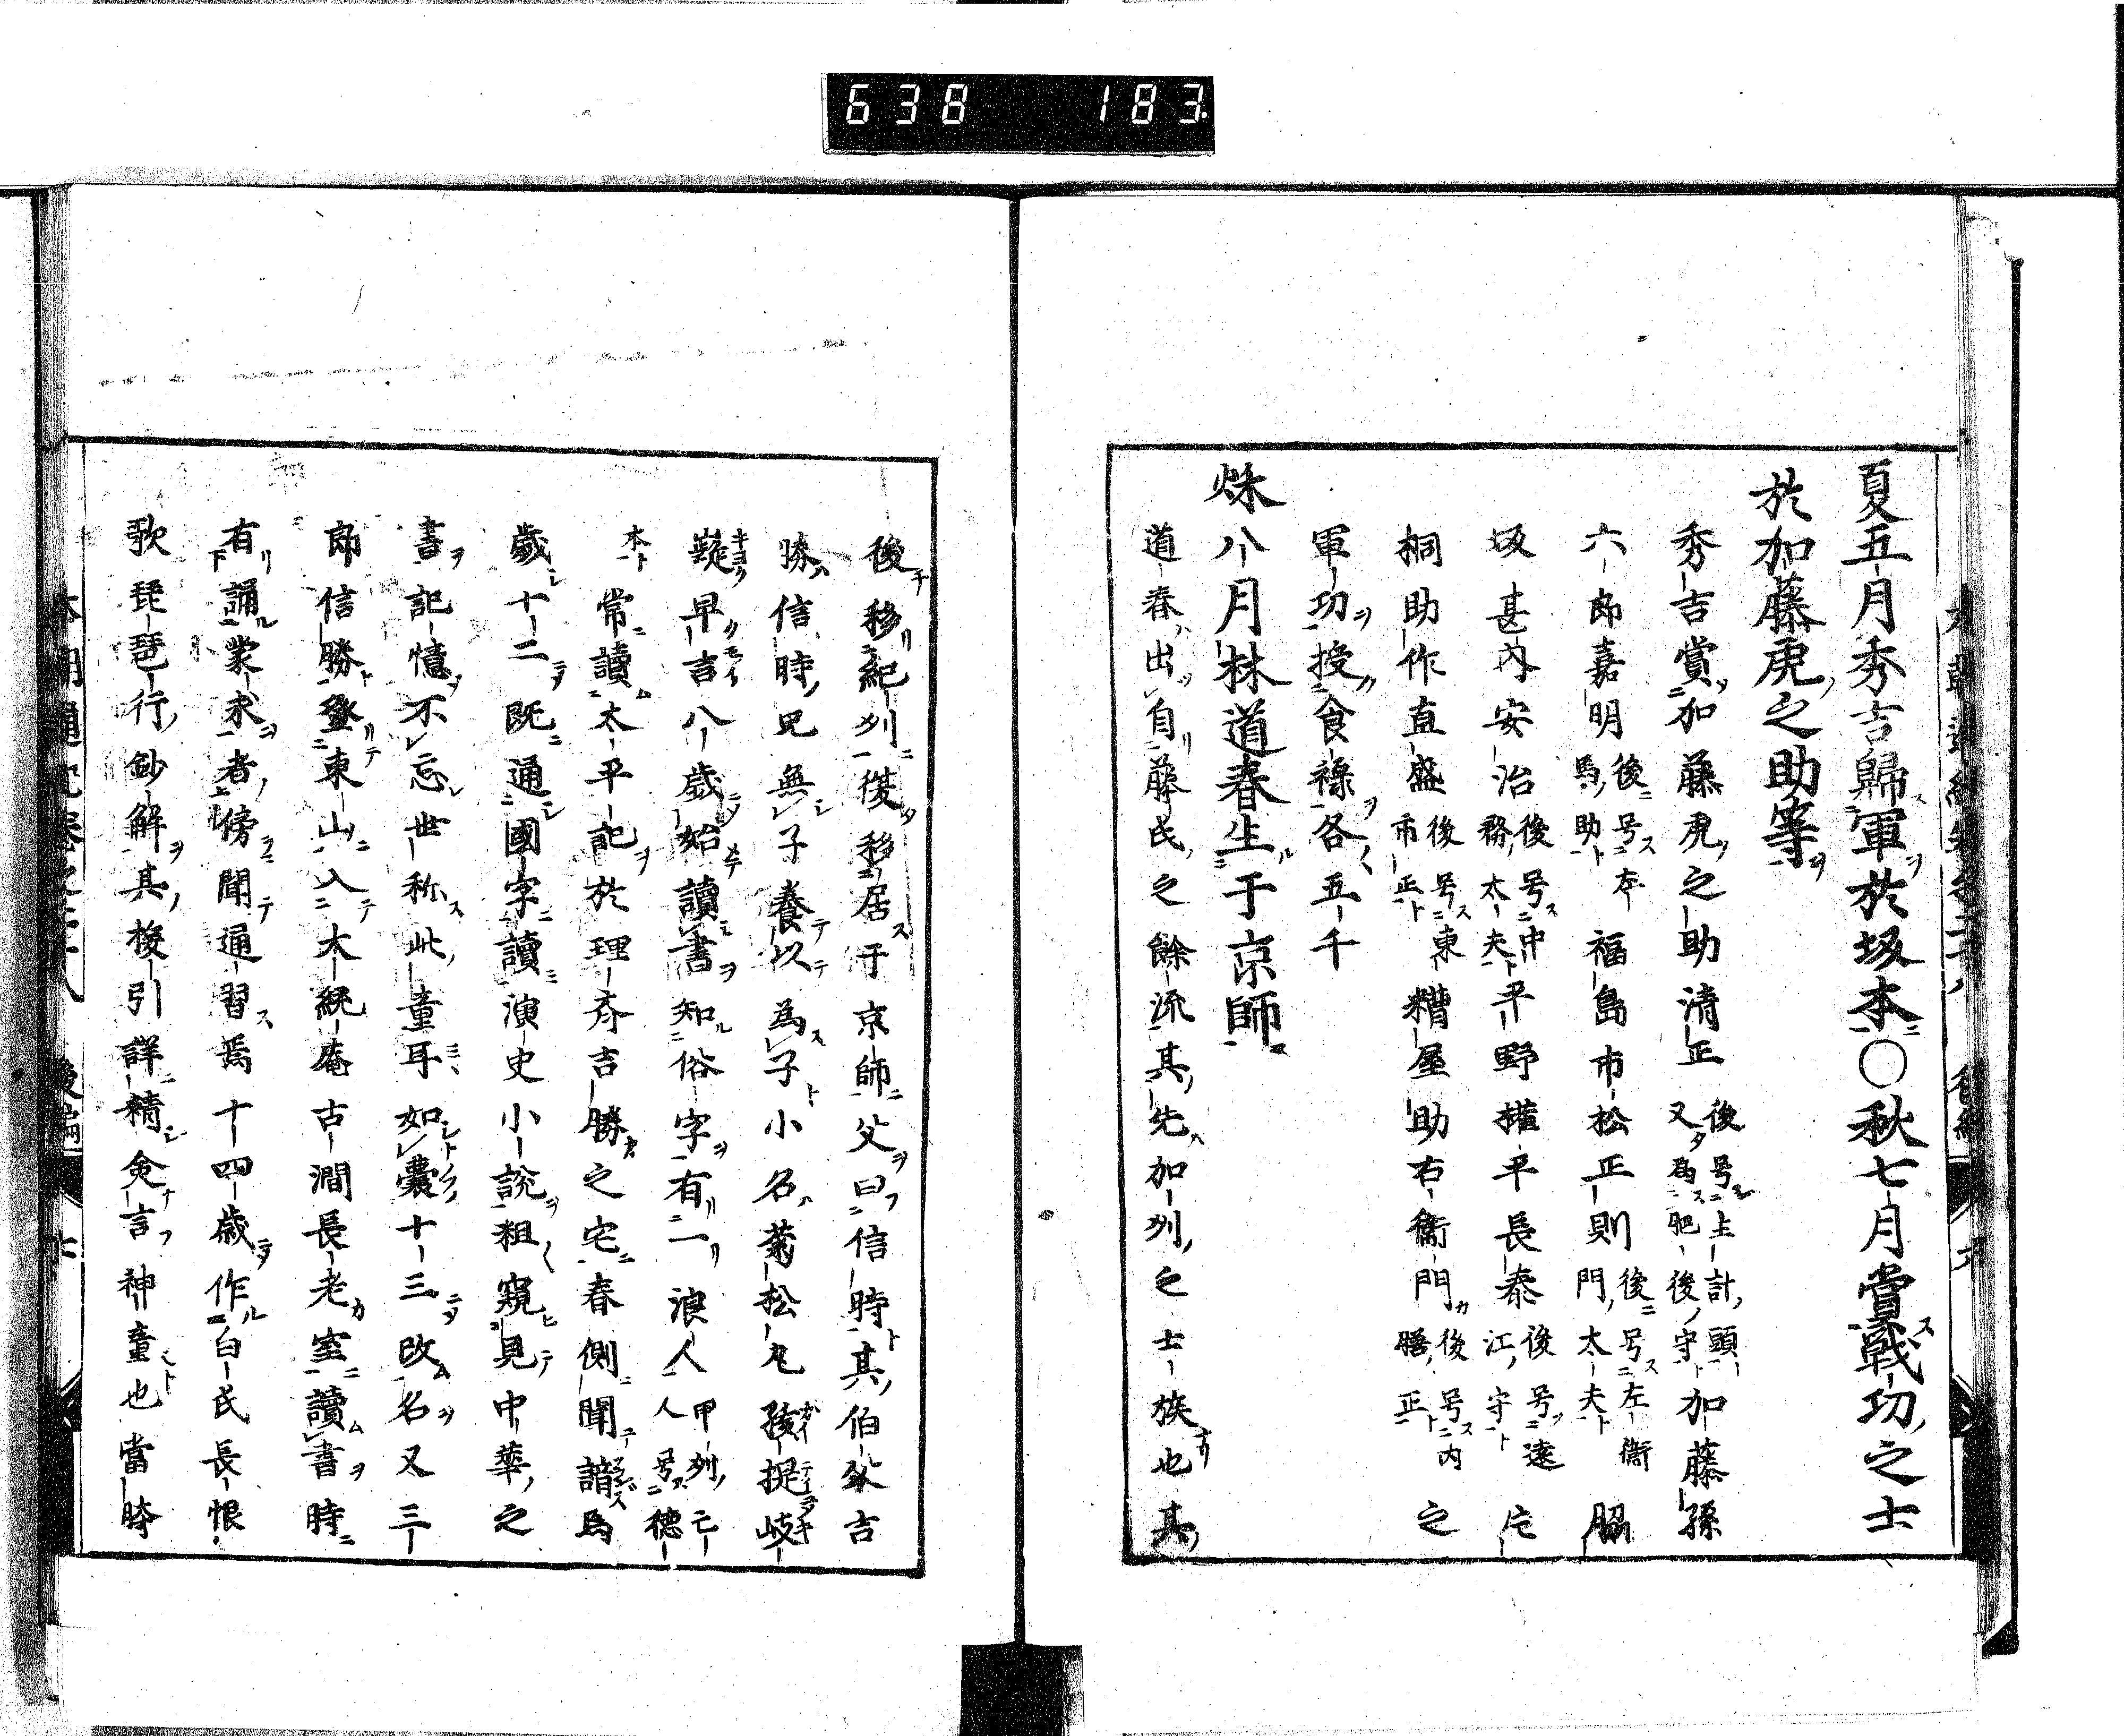 638 183
夏五月秀吉歸軍於坂本○秋七月賞戰功之士
於加藤虎之助等
秀吉賞加藤虎之助清正後号主計頭又為肥後守加藤孫
六郎嘉明後号左馬助福島市松正則後号左衞門太夫脇
坂甚內安治後号中務太夫平野權平長泰後号遠江守片
桐助作直盛後号東市正糟屋助右衞門後号內膳正之
軍功授食祿各五千
秌八月林道春生于京師
道春出自藤氏之餘流其先加州之士族也其
後移紀州後移居于京師父曰信時其伯父吉
勝信時兄無子養以為子小名菊松丸孩提岐
嶷早吉八歲始讀書知俗字有二浪人甲州亡人号德
本常讀太平記於理斉吉勝之宅春側聞諳焉
歲十二既通國字讀演史小說粗窺見中華之
書記憶不忘世称此童耳如囊十三改名又三
郎信勝登東山入大統庵古澗長老室讀書時
有誦蒙求者傍聞通習焉十四歲作白氏長恨
歌琵琶行鈔解其援引詳精僉言神童也當時